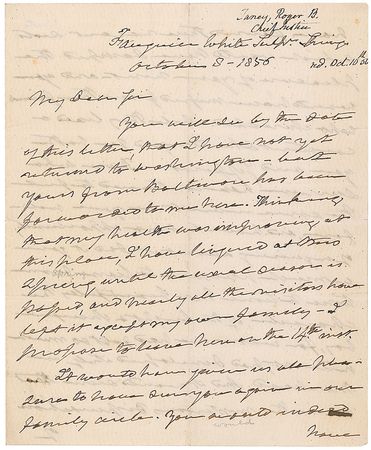 Taney, Roger B.
Chief Justice
Fauquier White Sulpr. Springs
October 8 - 1856
rd. Oct. 10th 56
My Dear Sir
You will see by the date
of this letter, that I have not yet
returned to Washington - but
yours from Baltimore has been
forwarded to me here. Thinking
that my health was improving at
this place, I have lingered at this
spring
Spring until the usual season is
passed, and nearly all the visitors have
left it except my own family - I
propose to leave here on the 14th inst.
It would have given us all plea-
sure to have seen you again in our
family circle. You would indeed
would
have